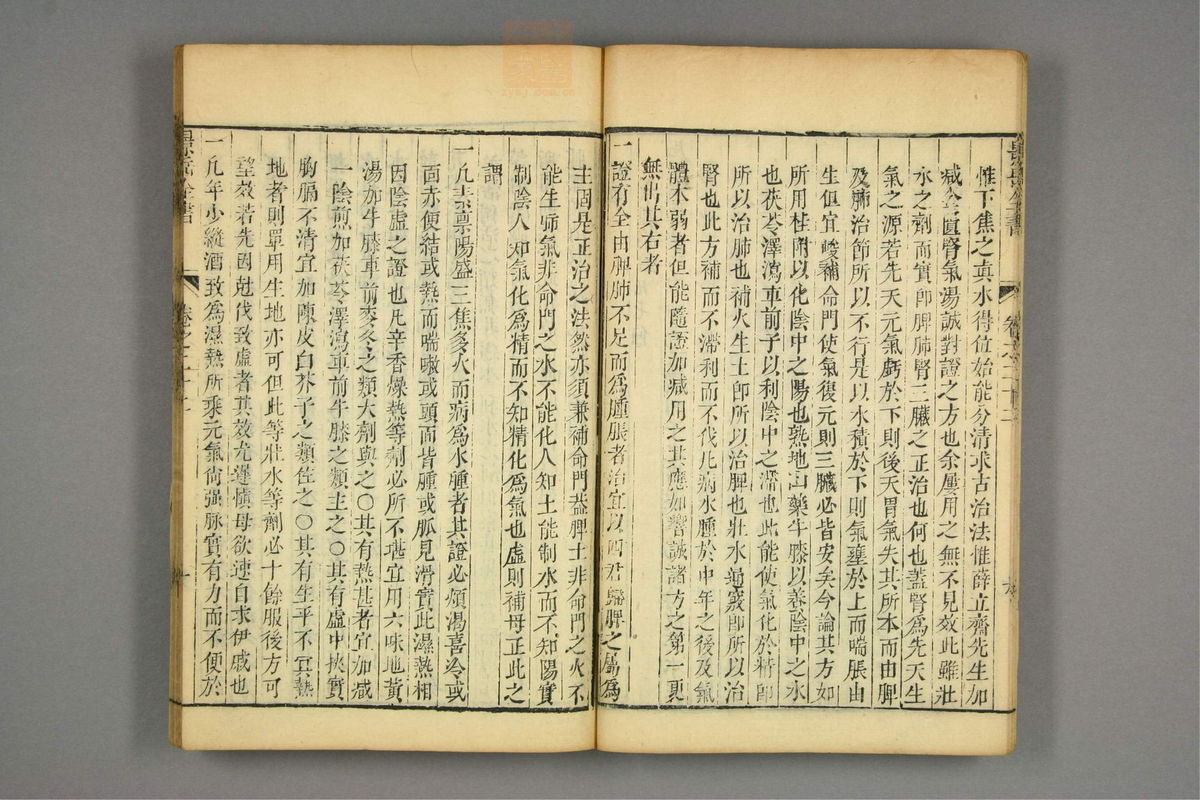 惟下焦之真水得位始能分清求古治法惟薛立齋先生加
減金匱腎氣湯誠對證之方也余屢用之無不見效此雖壯
水之劑而實即脾肺腎三臟之正治也何也蓋腎為先天生
氣之源若先天元氣虧於下則後天胃氣失其所本而由脾
及肺治節所以不行是以水積於下則氣壅於上而喘脹由
生但宜峻補命門使氣復元則三臟必皆安矣今論其方如
所用桂附以化陰中之陽也熟地山藥牛膝以養陰中之水
也茯苓澤瀉車前子以利陰中之滯也此能使氣化於精即
所以治肺也補火生土即所以治脾也壯水通竅即所以治
腎也此方補而不滯利而不伐凡病水腫於中年之後及氣
體本弱者但能隨證加減用之其應如響誠諸方之第一更
無出其右者
一證有全由脾肺不足而為腫脹者治宜以四君歸脾之屬為
主固是正治之法然亦須兼補命門蓋脾土非命門之火不
能生肺氣非命門之水不能化人知土能制水而不知陽實
制陰人知氣化為精而不知精化為氣也虛則補母正此之
謂
一凡素禀陽盛三焦多火而病為水腫者其證必煩渴喜冷或
面赤便結或熱而喘嗽或頭面皆腫或脈見滑實此濕熱相
因陰虛之證也凡辛香燥熱等劑必所不堪宜用六味地黃
湯加牛膝車前麥冬之類大劑與之○其有熱甚者宜加減
一陰煎加茯苓澤瀉車前牛膝之類主之○其有虛中挾實
胸膈不清宜加陳皮白芥子之類佐之○其有生平不宜熱
地者則單用生地亦可但此等壯水等劑必十餘服後方可
望效若先因尅伐致虛者其效尤遲慎毋欲速自求伊戚也
一凡年少縱酒致為濕熱所乘元氣尚强脉實有力而不便於